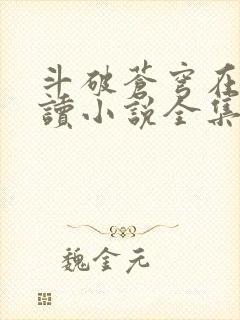 斗破蒼穹在
讀小説全集
魏金元